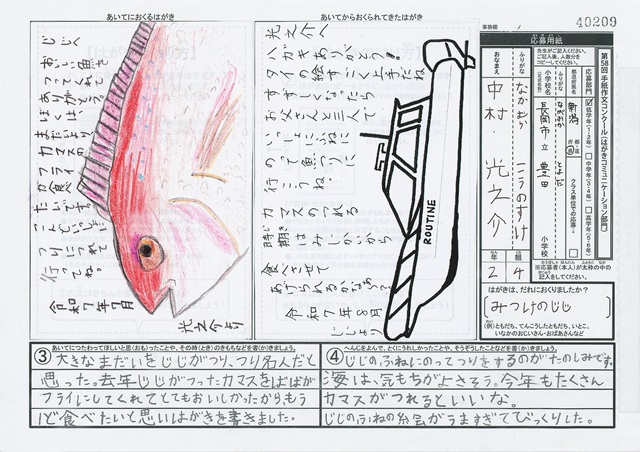 あいてにおくるはがき
じじへ
おいしい魚を
つってくれて
ありがとう。
ぼくは、
まだいより
カマスの
フライ
が食べ
たいです。
こんどいっしょに
つりにつれて
行ってね。
令和7年7月
光之介より
あいてからおくられてきたはがき
光之介へ
ハガキありがとう。
タイの絵すごく上手だね
すずしくなったら
お父さんと三人で
いっしょにふねに
のって魚つりに
行こうね。
カマスのつれる
時期はみじかいから
食べさせて
あげられるかな。
令和7年8月
じじより
ROUTINE
事務欄
40209
応募用紙
第58回 手紙作文コンクール(はがきコミュニケーション部門)
応募部門
低学年(1・2年)
中学年(3・4年)
高学年(5・6年)
都道府県名
新潟
クラス単位での応募
小学校名
長岡市立 豊田
小学校
ふりがな
なかむら こうのすけ
おなまえ
中村 光之介
2年
4組
※応募者(本人)が太枠の中の
記入をしてください。
はがきは、だれにおくりましたか?
みつけのじじ
(例)ともだち、てんこうしたともだち、いとこ、
いなかのおじいさん・おばあさんなど
あいてにつたわってほしいと思(おも)ったことや、その時(とき)のきもちなどを書(か)きましょう。
③大きなまだいをじじがつり、つり名人だと
思った。去年じじがつったカマスをばばが
フライにしてくれてとてもおいしかったから、もう
1ど食べたいと思いはがきを書きました。
へんじをよんで、とくにうれしかったことや、そうぞうしたことなどを書(か)きましょう。
④じじのふねにのってつりをするのがたのしみです。
海は、気もちがよさそう。今年もたくさん
カマスがつれるといいな。
じじのふねの絵がうますぎてびっくりした。